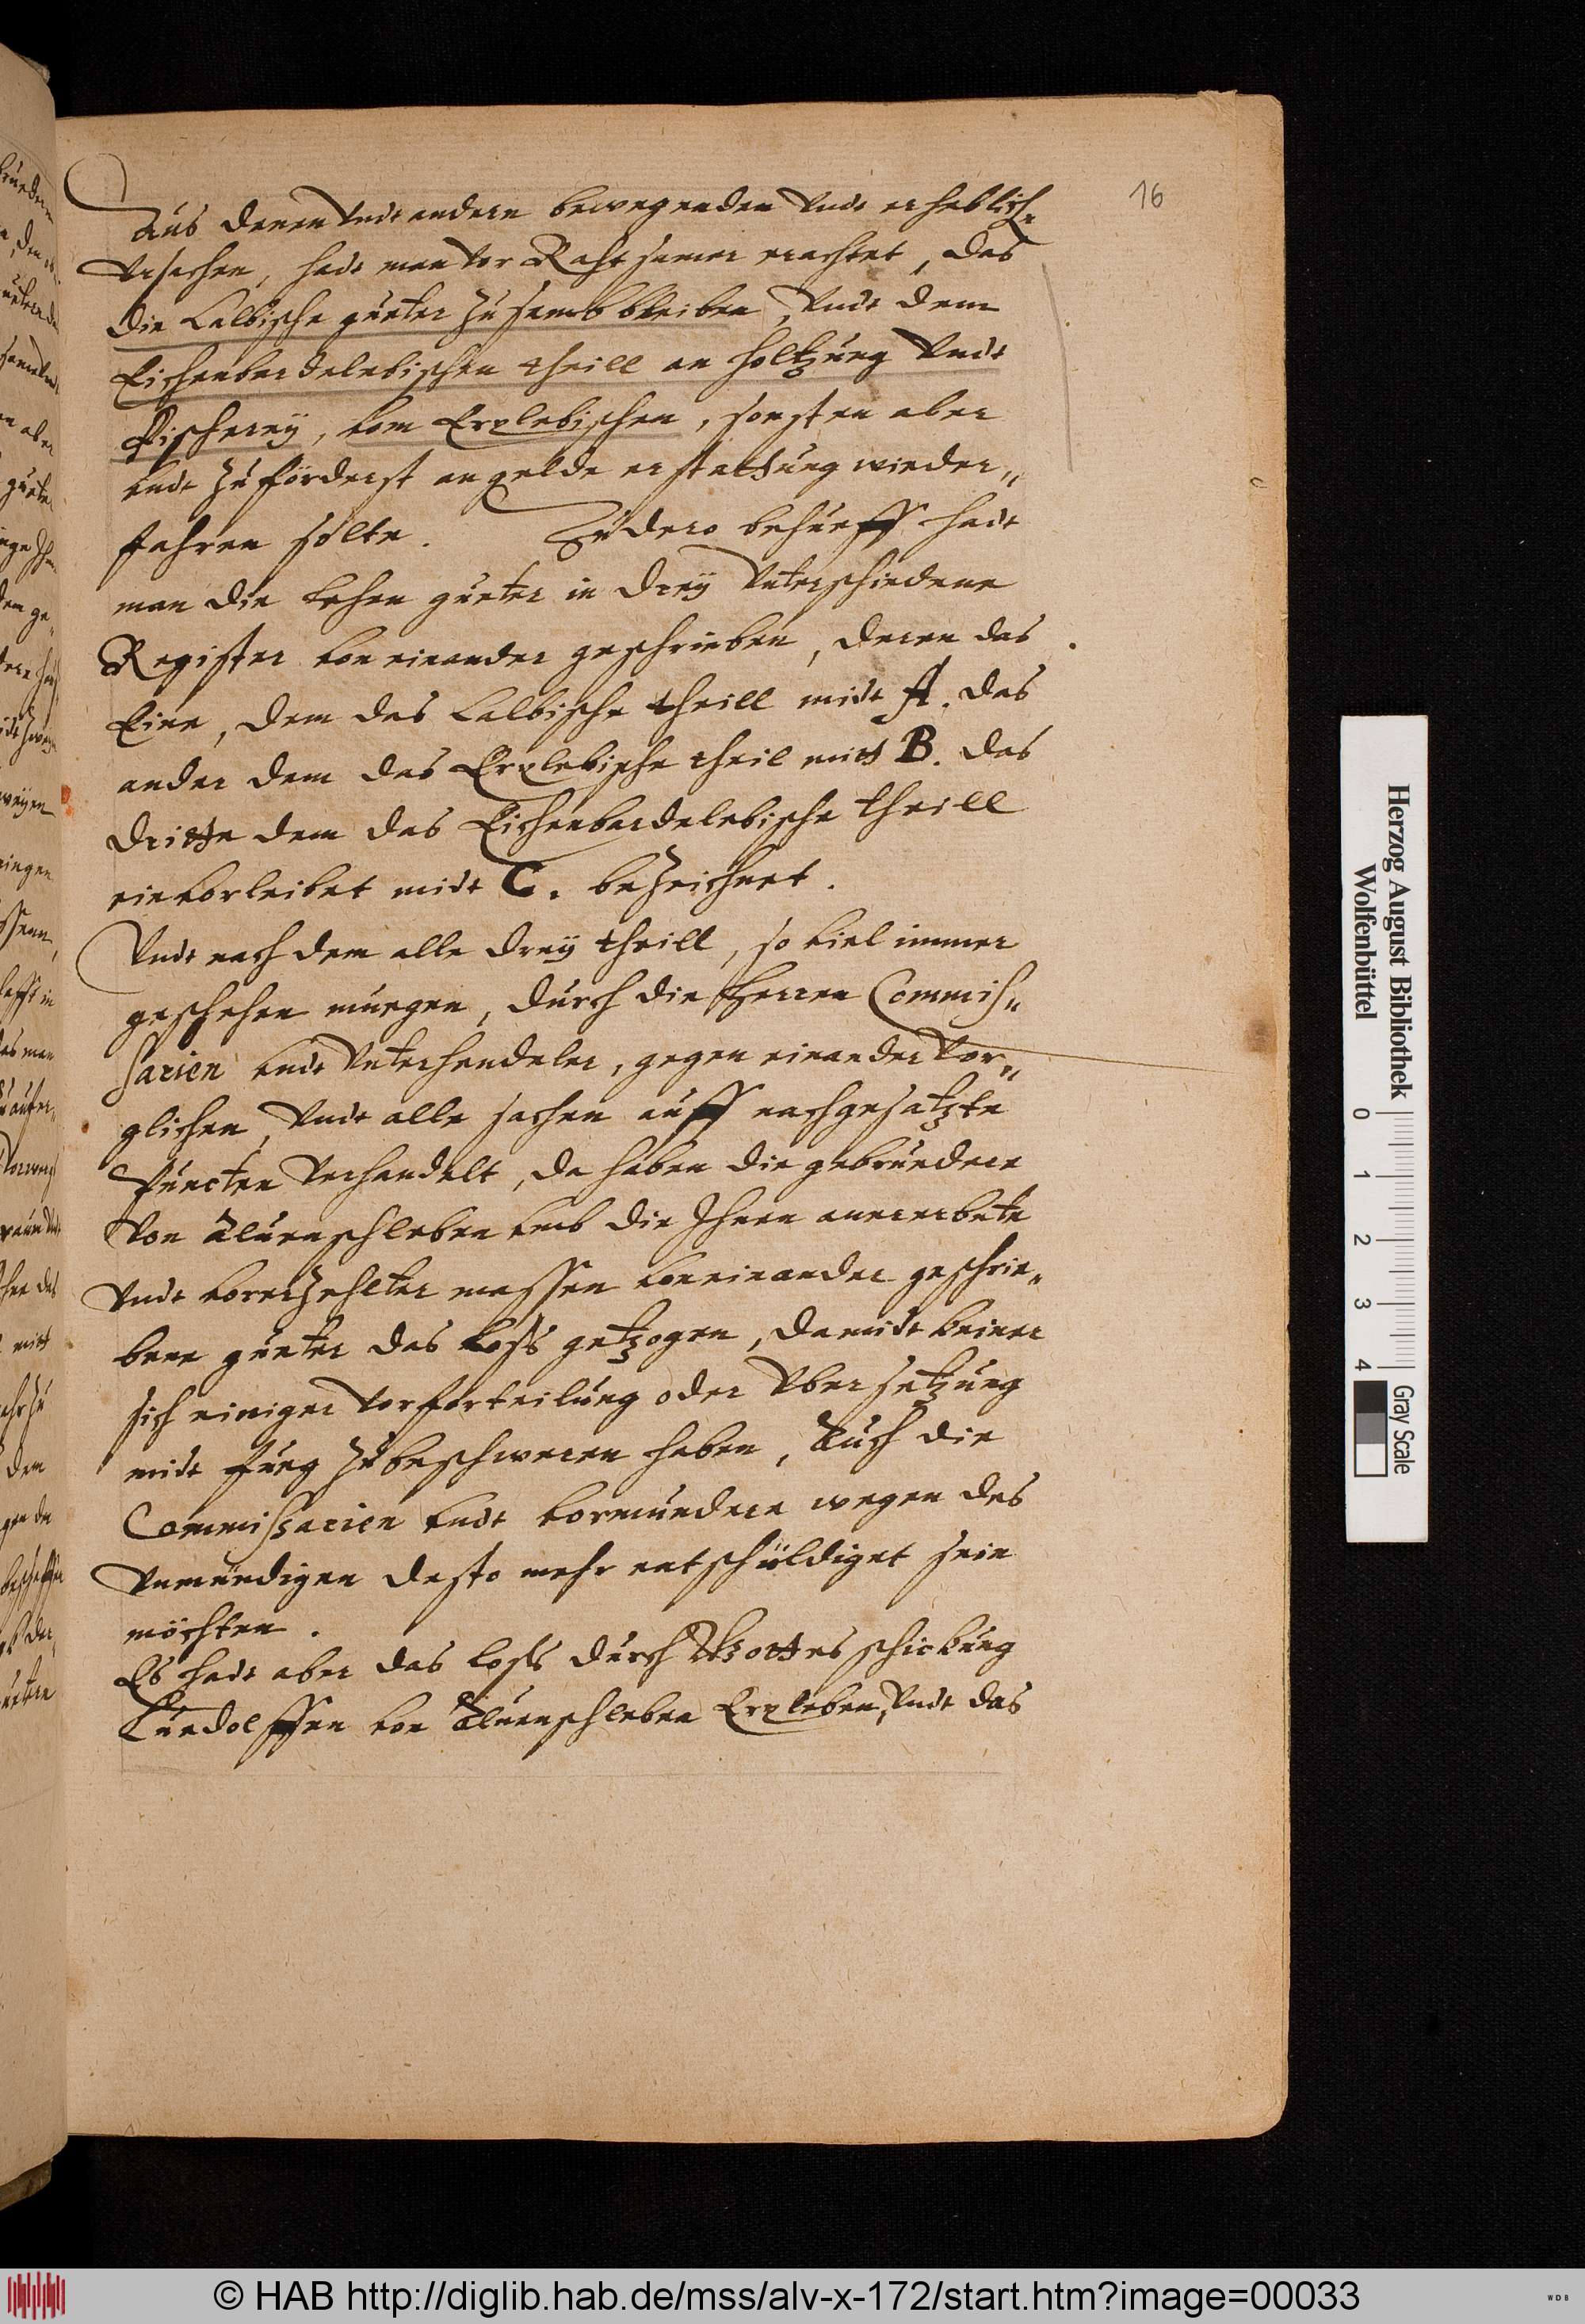 16
Aus denen Vndt andern bewegenden Vndt erheblichen
Vrsachen, hadt man vor Rahtsamer erachtet, das
die Calbische gueter zusamb bleiben, Vndt dem
Eichenbardelebischen theill an holtzung Vndt
Fischerey, vom Erxlebischen, sonsten aber
vndt zuförderst an gelde erstattung wieder„
fahren solte. Zu dero behueff hadt
man die Lehen gueter in drey Vnterschiedene
Register von einander geschrieben, deren das
Eine, dem das Calbische theill midt A. das
ander dem das Erxlebische theil mitt B. das
dritte dem das Eichenbardelebische theill
einvorleibet midt C. bezeichnet.
Vndt nach dem alle drey theill, so viel immer
geschehen muegen, durch die Herren Commis„
sarien vndt Vnterhendeler, gegen einander Vor„
glichen, Vndt alle sachen auff nachgesatzte
Puncten Verhandelt, da haben die gebruedere
Von Aluenschleben vmb die Ihnen anererbete
Vndt vorerzehlter massen von einander geschrie„
bene gueter das Loss getzogen, damidt keiner
sich einiger Vorforteilung oder Vbersetzung
midt fueg zu beschweren haben, Auch die
Commissarien vndt vormundere wegen des
Vnmündigen desto mehr entschüldiget sein
möchten.
Es hadt aber das loss durch Gottes schickung
Ludolffen von Aluenschleben Erxleben, Vndt das
Herzog August Bibliothek
Wolfenbüttel
0 1 2 3 4
Gray Scale
© HAB http://diglib.hab.de/mss/alv-x-172/start.htm?image=00033
WDB